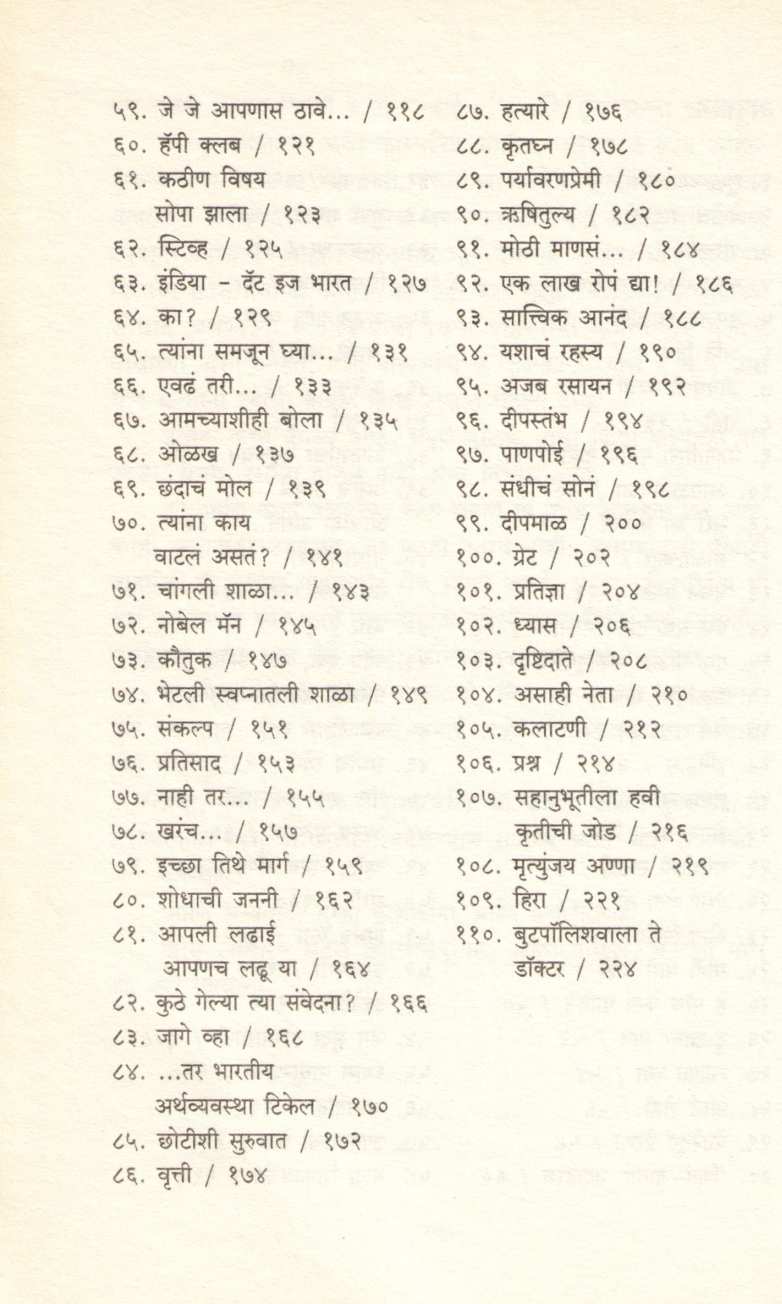 ५९. जे जे आपणास ठावे... / ११८
६०. हॅपी क्लब / १२१
६१. कठीण विषय
सोपा झाला / १२३
६२. स्टिव्ह / १२५
६३. इंडिया - दॅट इज भारत / १२७
६४. का? / १२९
६५. त्यांना समजून घ्या... / १३१
६६. एवढं तरी... / १३३
६७. आमच्याशीही बोला / १३५
६८. ओळख / १३७
६९. छंदाचं मोल / १३९
७०. त्यांना काय
वाटलं असतं? / १४१
७१. चांगली शाळा... / १४३
७२. नोबेल मॅन / १४५
७३. कौतुक / १४७
७४. भेटली स्वप्नातली शाळा / १४९
७५. संकल्प / १५१
७६. प्रतिसाद / १५३
७७. नाही तर... / १५५
७८. खरंच... / १५७
७९. इच्छा तिथे मार्ग / १५९
८०. शोधाची जननी / १६२
८१. आपली लढाई
आपणच लढू या / १६४
८२. कुठे गेल्या त्या संवेदना? / १६६
८३. जागे व्हा / १६८
८४. ...तर भारतीय
अर्थव्यवस्था टिकेल / १७०
८५. छोटीशी सुरुवात / १७२
८६. वृत्ती / १७४
८७. हत्यारे / १७६
८८. कृतघ्न / १७८
८९. पर्यावरणप्रेमी / १८०
९०. ऋषितुल्य / १८२
९१. मोठी माणसं... / १८४
९२. एक लाख रोपं द्या! / १८६
९३. सात्त्विक आनंद / १८८
९४. यशाचं रहस्य / १९०
९५. अजब रसायन / १९२
९६. दीपस्तंभ / १९४
९७. पाणपोई / १९६
९८. संधीचं सोनं / १९८
९९. दीपमाळ / २००
१००. ग्रेट / २०२
१०१. प्रतिज्ञा / २०४
१०२. ध्यास / २०६
१०३. दृष्टिदाते / २०८
१०४. असाही नेता / २१०
१०५. कलाटणी / २१२
१०६. प्रश्न / २१४
१०७. सहानुभूतीला हवी
कृतीची जोड / २१६
१०८. मृत्युंजय अण्णा / २१९
१०९. हिरा / २२१
११०. बुटपॉलिशवाला ते
डॉक्टर / २२४